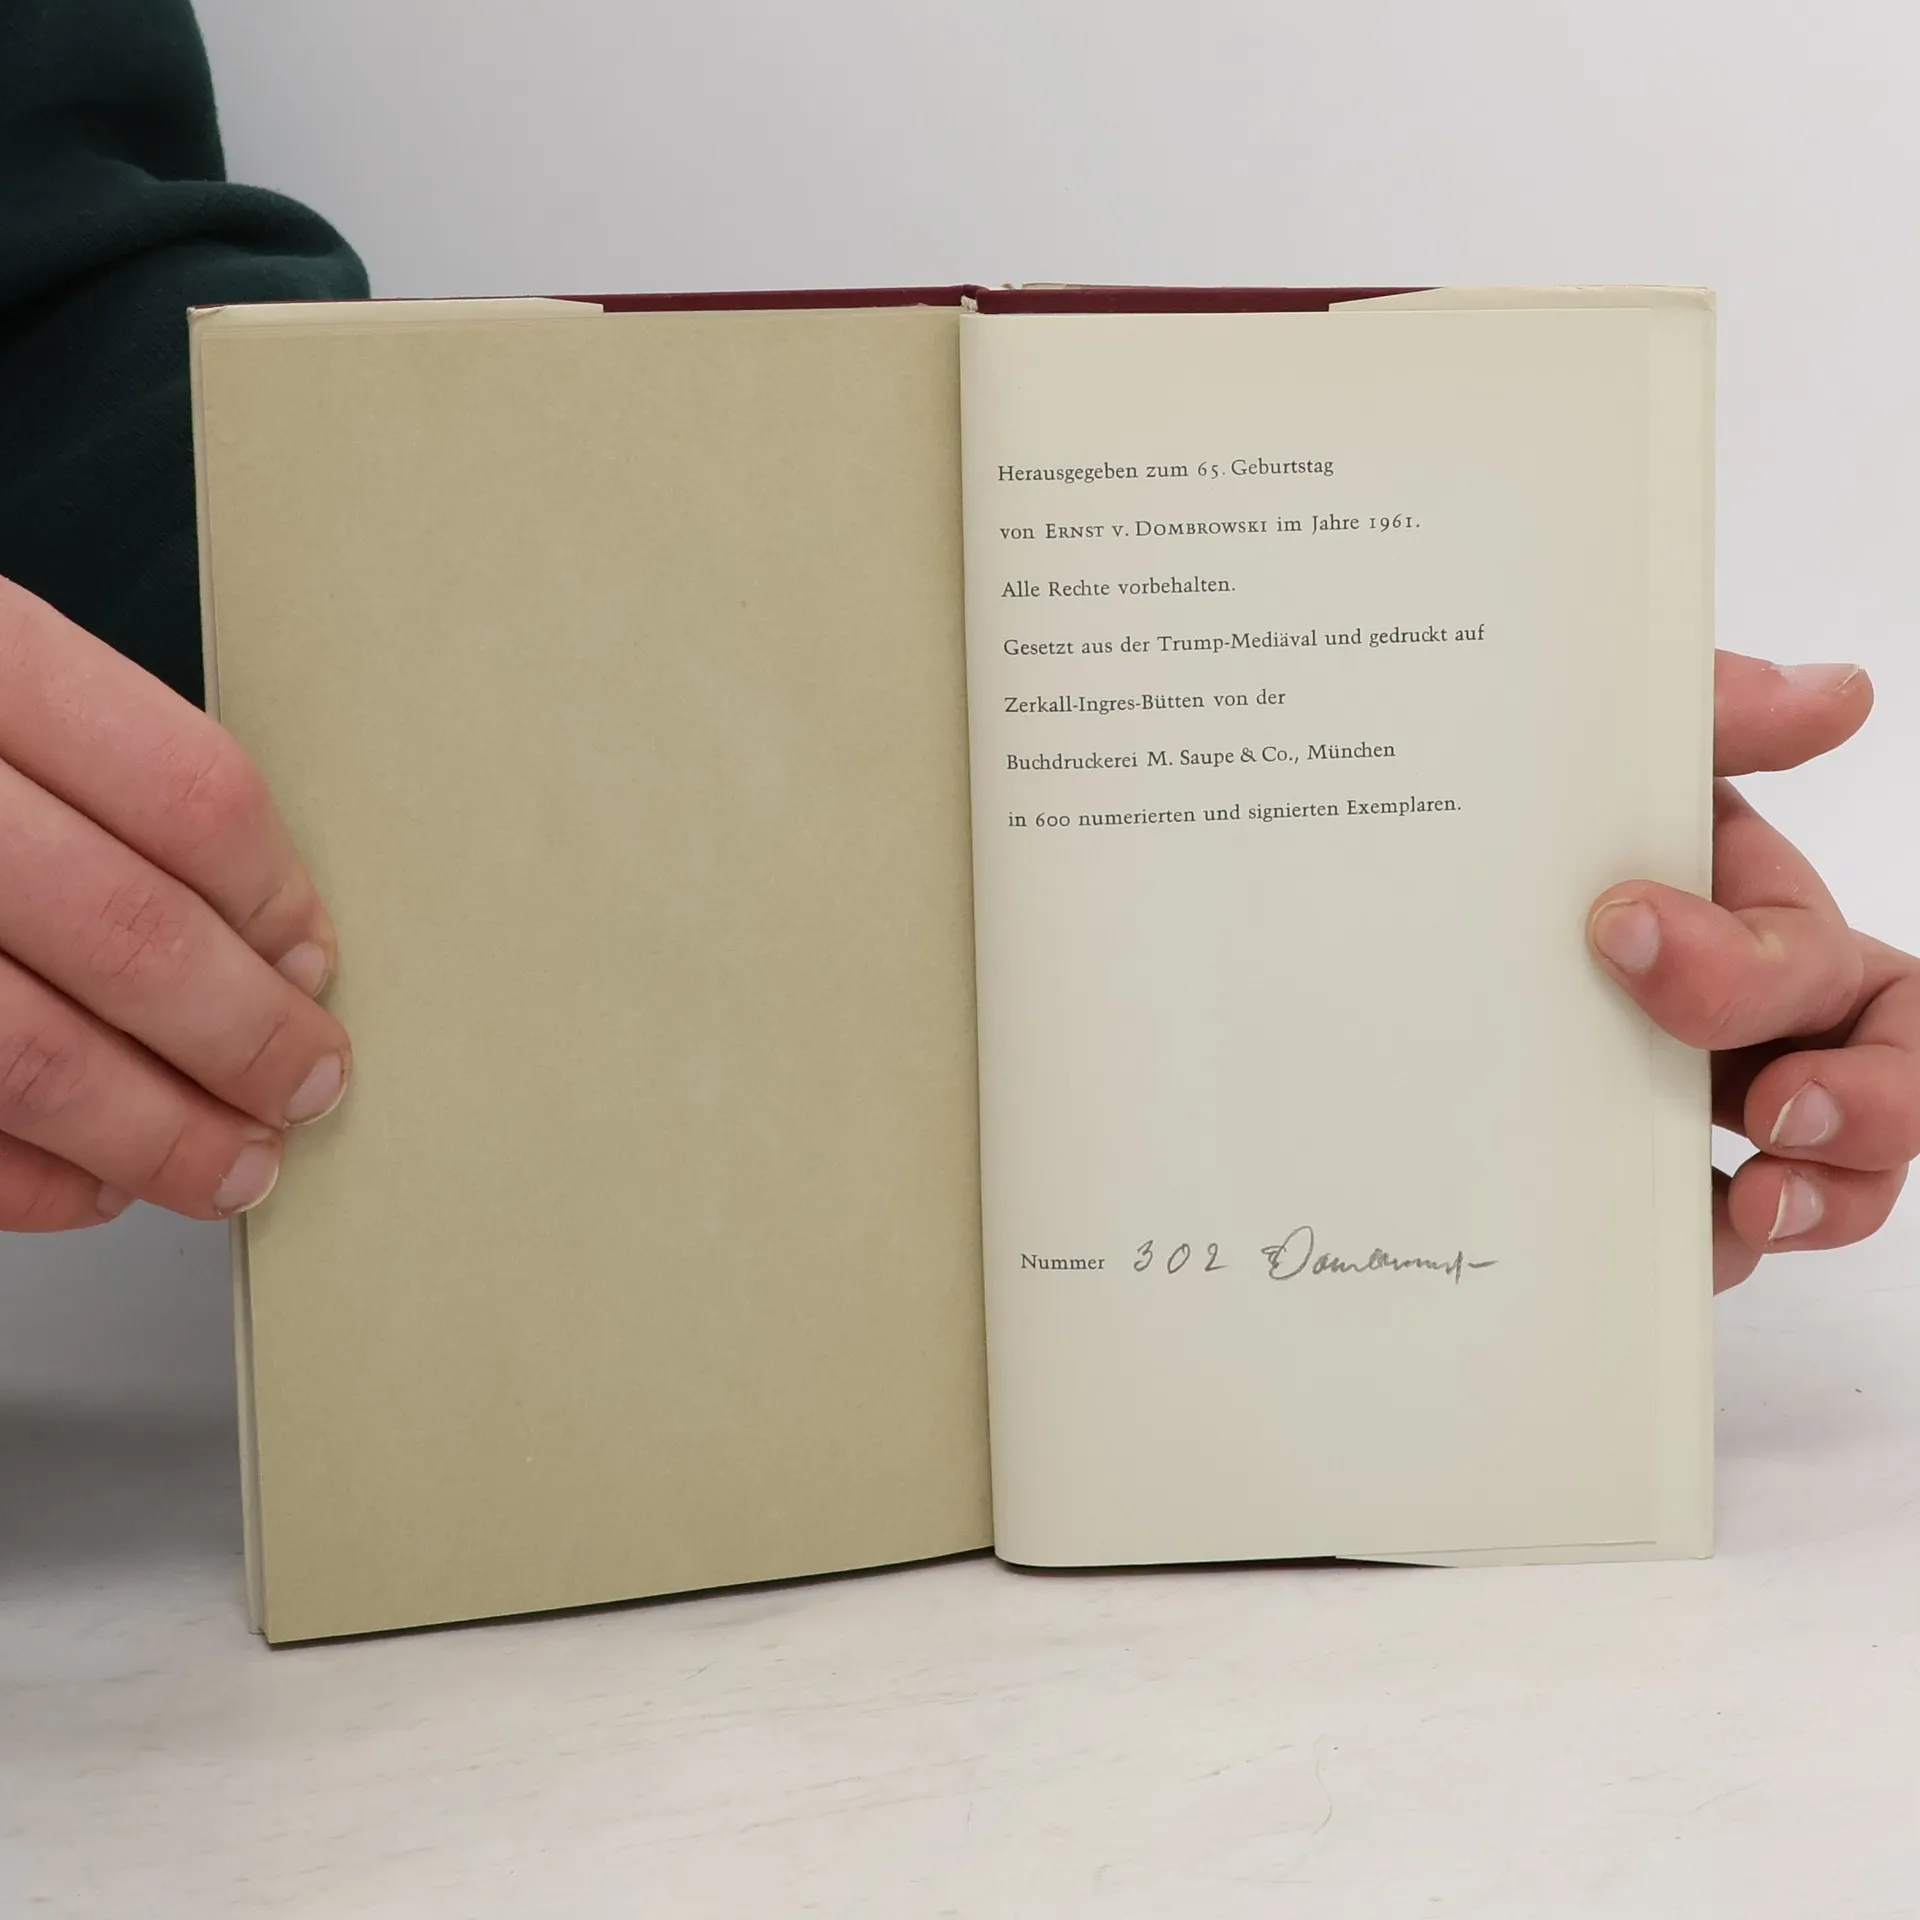 Herausgegeben zum 65. Geburtstag
von ERNST V. DOMBROWSKI im Jahre 1961.
Alle Rechte vorbehalten.
Gesetzt aus der Trump-Mediäval und gedruckt auf
Zerkall-Ingres-Bütten von der
Buchdruckerei M. Saupe & Co., München
in 600 numerierten und signierten Exemplaren.
Nummer 302